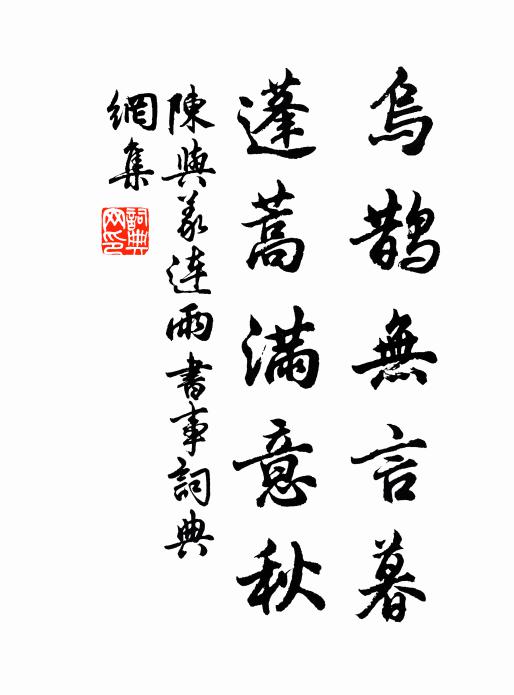 烏鵲無言暮
蓬蒿滿意秋
陳與義連雨書事詞典
網集
詞典网印